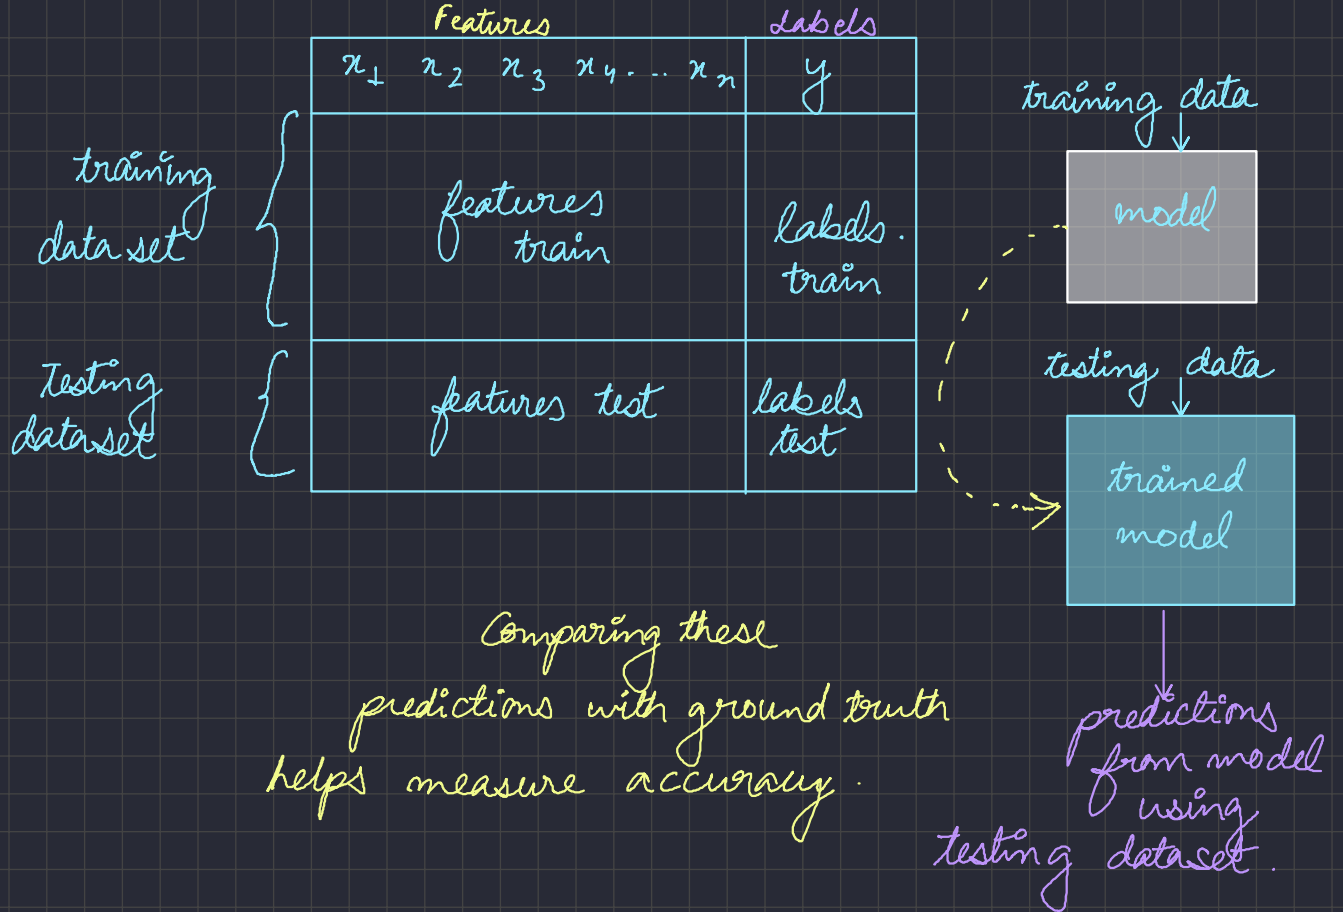 Features
Labels
x1 x2 x3 x4. ... xn
y
training
data set
features
train
labels.
train
Testing
dataset
features test
labels
test
training data
model
testing data
trained
model
Comparing these
predictions with ground truth
helps measure accuracy.
predictions
from model
using
testing dataset.